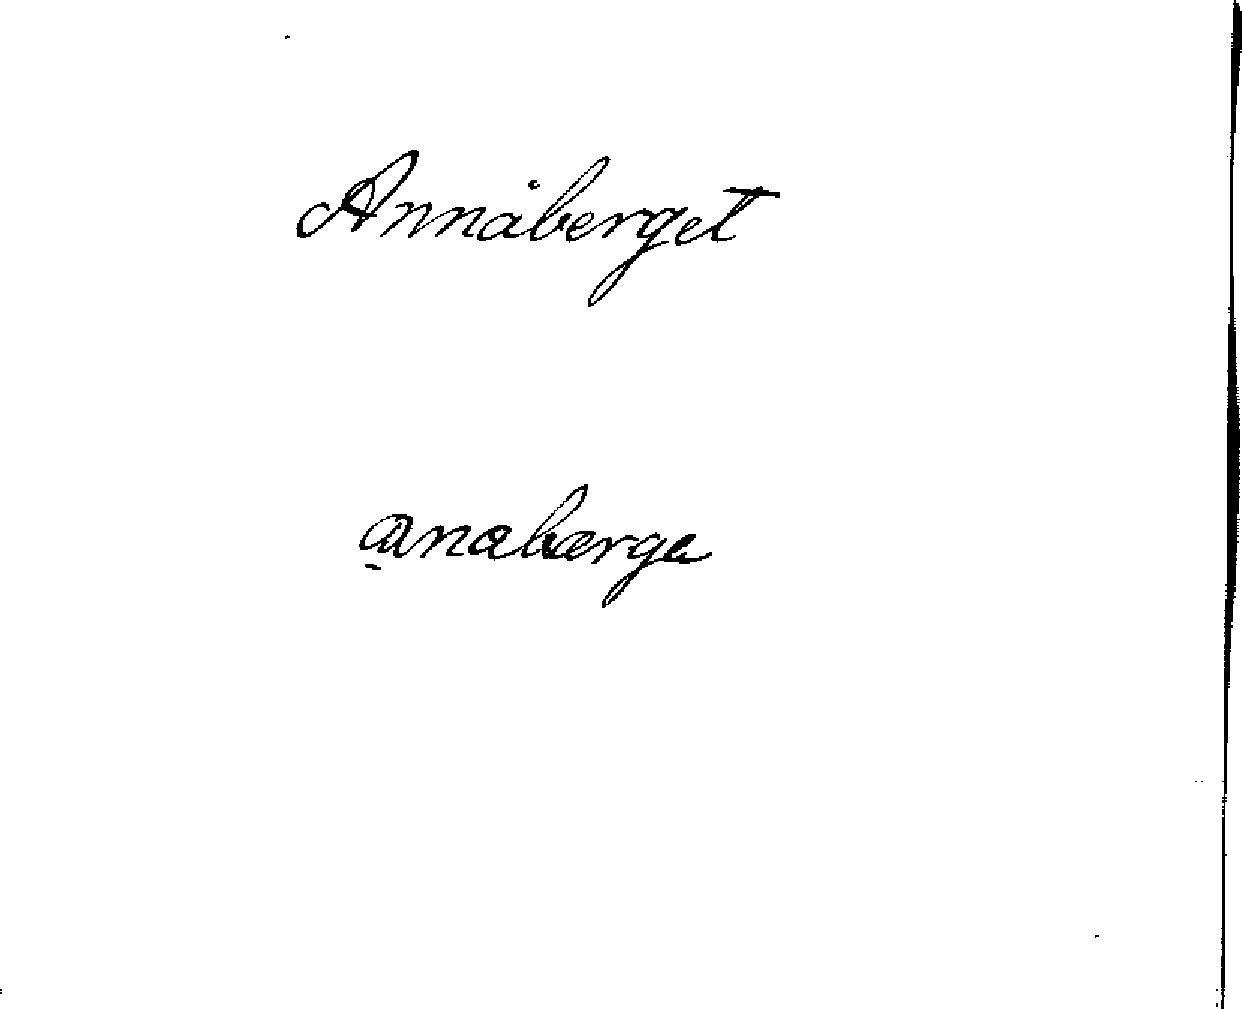 Annåberget
anabærge